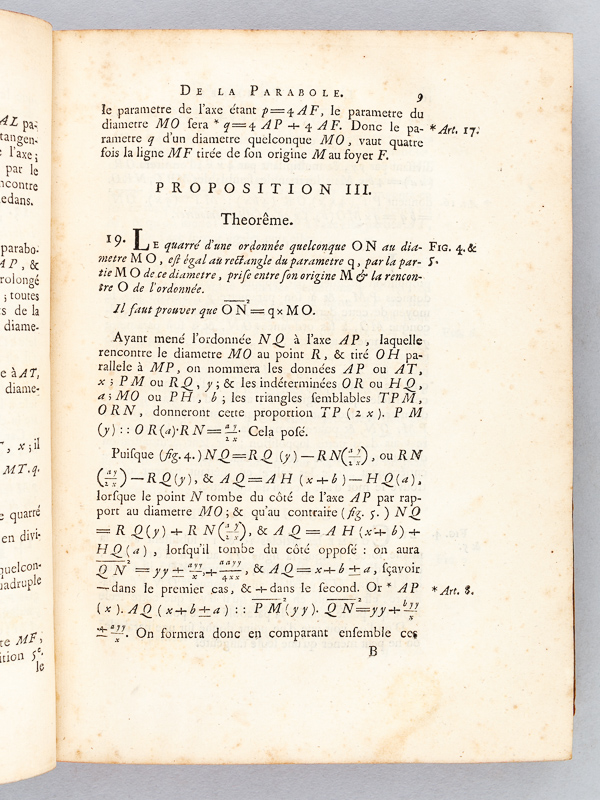 AL pa-
tangen-
l'axe;
par le
ncontre
edans.
parabo-
AP, &
rolongé
; toutes
s de la
diame-
e à AT,
diame-
T, x; il
MT. q.
e quarré
en divi-
uelcon-
uadruple
re MF,
ition 5e.
le
DE LA PARABOLE. 9
le parametre de l'axe étant p=4AF, le parametre du
diametre MO sera * q=4AP+4AF. Donc le pa- * Art. 17.
rametre q d'un diametre quelconque MO, vaut quatre
fois la ligne MF tirée de son origine M au foyer F.
PROPOSITION III.
Theorême.
19. LE quarré d'une ordonnée quelconque ON au dia- FIG. 4. &
metre MO, est égal au rectangle du parametre q, par la par- 5.
tie MO de ce diametre, prise entre son origine M & la rencon-
tre O de l'ordonnée.
Il faut prouver que O̅N̅² = q×MO.
Ayant mené l'ordonnée NQ à l'axe AP, laquelle
rencontre le diametre MO au point R, & tiré OH pa-
rallele à MP, on nommera les données AP ou AT,
x; PM ou RQ, y; & les indéterminées OR ou HQ,
a; MO ou PH, b; les triangles semblables TPM,
ORN, donneront cette proportion TP (2x). PM
(y) :: OR(a). RN = ay/2x. Cela posé.
Puisque (fig. 4.) NQ=RQ (y)—RN(ay/2x), ou RN
(ay/2x)—RQ(y), & AQ=AH (x+b)—HQ(a),
lorsque le point N tombe du côté de l'axe AP par rap-
port au diametre MO; & qu'au contraire (fig. 5.) NQ
=RQ(y)+RN(ay/2x), & AQ=AH(x+b)+
HQ(a), lorsqu'il tombe du côté opposé: on aura
Q̅N̅² = yy ± ayy/x, + aayy/4xx, & AQ=x+b±a, sçavoir
—dans le premier cas, & +dans le second. Or * AP * Art. 8.
(x). AQ (x+b±a) :: P̅M̅²(yy). Q̅N̅²=yy+byy/x
± ayy/x. On formera donc en comparant ensemble ces
B